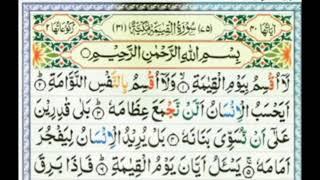 اٰيَاتُهَا ٤٠ (٧٥) سُوْرَةُ الْقِيٰمَةِ مَكِّيَّةٌ (٣١) رُكُوْعَاتُهَا ٢
بِسْمِ اللّٰهِ الرَّحْمٰنِ الرَّحِيْمِ
لَاۤ اُقْسِمُ بِيَوْمِ الْقِيٰمَةِ ۝١ وَلَاۤ اُقْسِمُ بِالنَّفْسِ اللَّوَّامَةِ ۝٢
اَيَحْسَبُ الْاِنْسَانُ اَلَّنْ نَّجْمَعَ عِظَامَهٗ ۝٣ بَلٰى قٰدِرِيْنَ
عَلٰٓى اَنْ نُّسَوِّيَ بَنَانَهٗ ۝٤ بَلْ يُرِيْدُ الْاِنْسَانُ لِيَفْجُرَ
اَمَامَهٗ ۝٥ يَسْـَٔلُ اَيَّانَ يَوْمُ الْقِيٰمَةِ ۝٦ فَاِذَا بَرِقَ